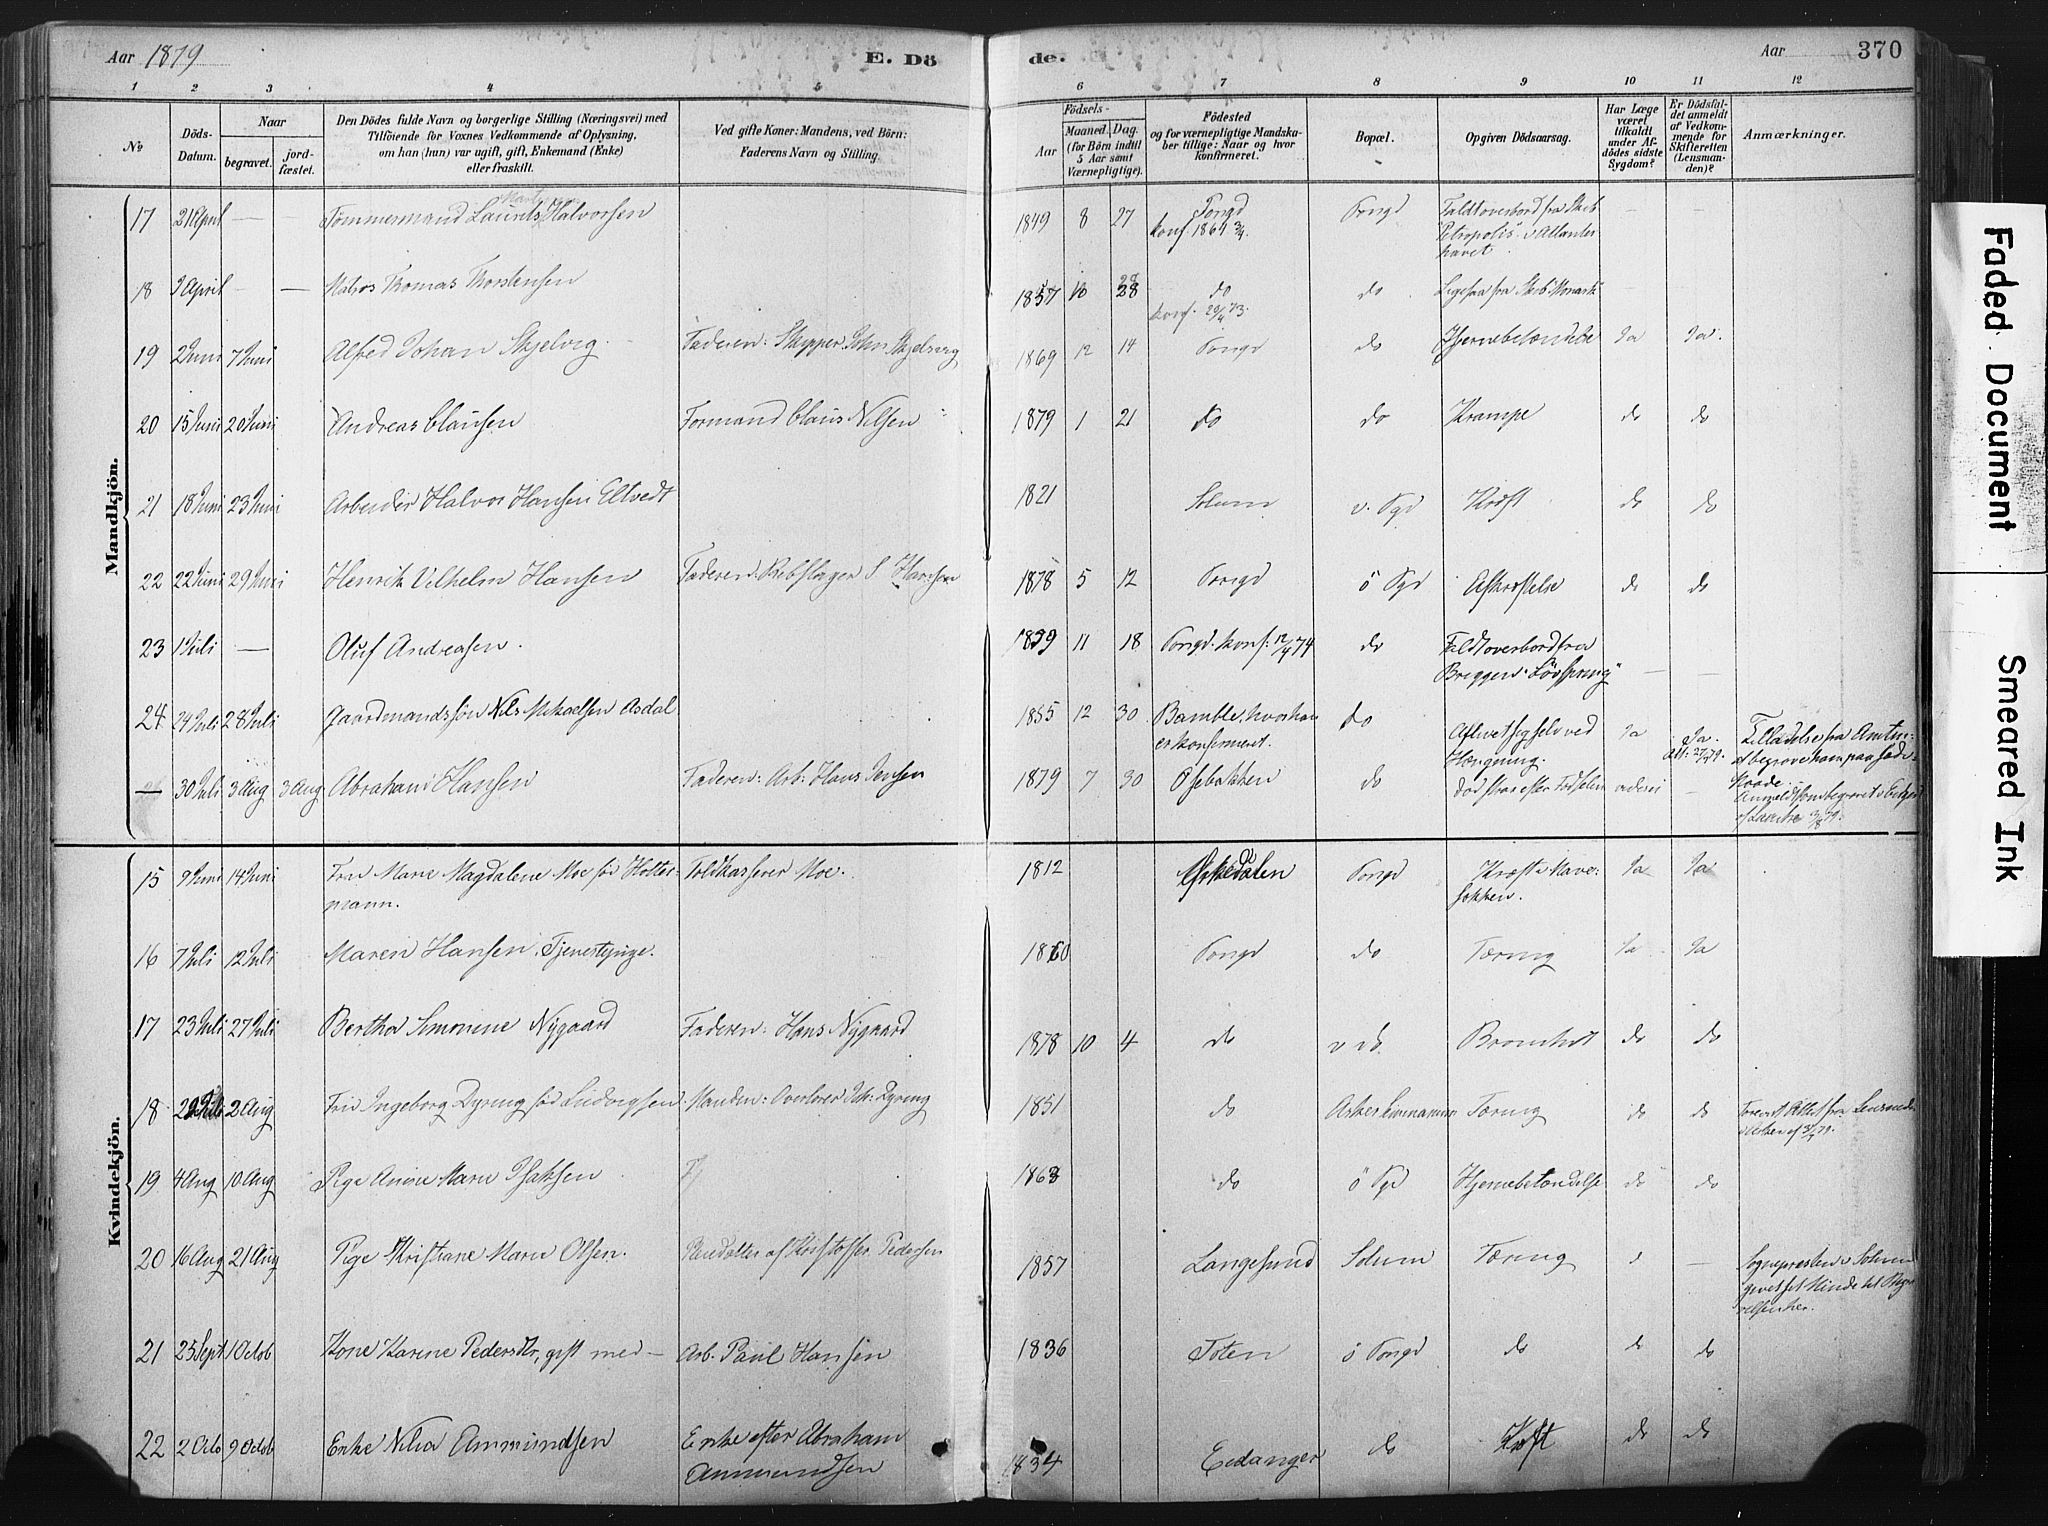 Aar 1879
E. Dö
de.
Aar
370
1 2 3 4 5 6 7 8 9 10 11 12
No
Döds-
Datum.
Naar
begravet.
jord-
fæstet.
Den Dödes fulde Navn og borgerlige Stilling (Næringsvei) med
Tilföiende for Voxnes Vedkommende af Oplysning,
om han (hun) var ugift, gift, Enkemand (Enke)
eller fraskilt.
Ved gifte Koner: Mandens, ved Börn:
Faderens Navn og Stilling.
Födsels-
Aar
Maaned. Dag.
(for Börn indtil
5 Aar samt
Værnepligtige).
Födested
og for værnepligtige Mandska-
ber tillige: Naar og hvor
konfirmeret.
Bopæl.
Opgiven Dödsaarsag.
Har Læge
været
tilkaldt
under Af-
dödes sidste
Sygdom?
Er Dödsfal-
det anmeldt
af Vedkom-
mende for
Skifteretten
(Lensman-
den)?
Anmærkninger.
Mandkjön.
17 21 April — Tömmermand Laurits Halvorsen 1849 8 27 Porsgd Porsgd Faldt overbord fra Skib
konf. 1864 Petropolis i Atlanter
havet
18 April — — Matros Thomas Thorstensen 1857 10 28 do do Ligesaa fra Skib Monark
konf. 20/4 73.
19 2 Juni 7 Juni Alfred Johan Skjelvig. Faderen: Skipper John Skjelvig 1869 12 14 Porsgd do Hjernebetændelse Ja Ja.
20 15 Juni 20 Juni Andreas Clausen Formand Claus Nilsen 1879 1 21 do do Krampe do do
21 18 Juni 23 Juni Arbeider Halvor Hansen Eltvedt 1821 Solum v. Pgd Kræft do do
22 22 Juni 29 Juni Henrik Vilhelm Hansen Faderen: Rebslager S. Hansen 1878 5 12 Porsgd ö Pgd Afkræftelse do do
23 1 Juli — Oluf Andreasen. 1859 11 18 Porsgd. konf: 12/4 74 do Faldt overbord fra
Briggen "Lövspring" — —
24 24 Juli 28 Juli Gaardmandssön Nils Mikaelsen Asdal 1855 12 30 Bamble, hvor han do Aflivet sig selv ved Ja Ja. Tilladelse fra Amtm:
er konfirmeret. Hængning. Att: 27/7 79. at begrove ham paa
— 30 Juli 3 Aug 3 Aug Abraham Hansen Faderen: Arb. Hans Jensen 1879 7 30 Osebakken do Död strax efter Födselen —
Anmeldt som begravet i
Kvindekjön.
15 9 Juni 14 Juni Fru Marie Magdalene Moe föd Holter- Toldkasserer Moe. 1812 Porsgd Kræft i Mave- Ja Ja
mann. sækken.
16 7 Juli 12 Juli Maren Hansen, Tjenestepige. 1860 Porsgd do Tæring Ja Ja
17 23 Juli 27 Juli Bertha Simonine Nygaard Faderen: Hans Nygaard 1878 10 4 do v do. Bronchit do do
18 2 Aug Fru Ingeborg Dyring föd Ludvigsen Manden: Overlærer Joh: Dyring 1851 do Asker Tæring do do Lensmanden
i Asker af
19 4 Aug 10 Aug Pige Anine Marie Isaksen 1868 do ö Pgd Hjernebetændelse do do
20 16 Aug 21 Aug Pige Kristiane Marie Olsen. Pleiedatter af Kristoffer Pedersen 1857 Langesund Solum Tæring — Sognepresten i Solum
givet sit Minde til Begra
velsen her.
21 25 Sept 1 Octob Kone Karine Pedersdtr, gift med — Arb. Paul Hansen 1836 Toten ö Porsgd do do do
22 2 Octo 9 Octob Enke Nilia Ammundsen Enke efter Abraham 1834 Eidanger do Kræft do do
Ammundsen
Faded Document
Smeared Ink